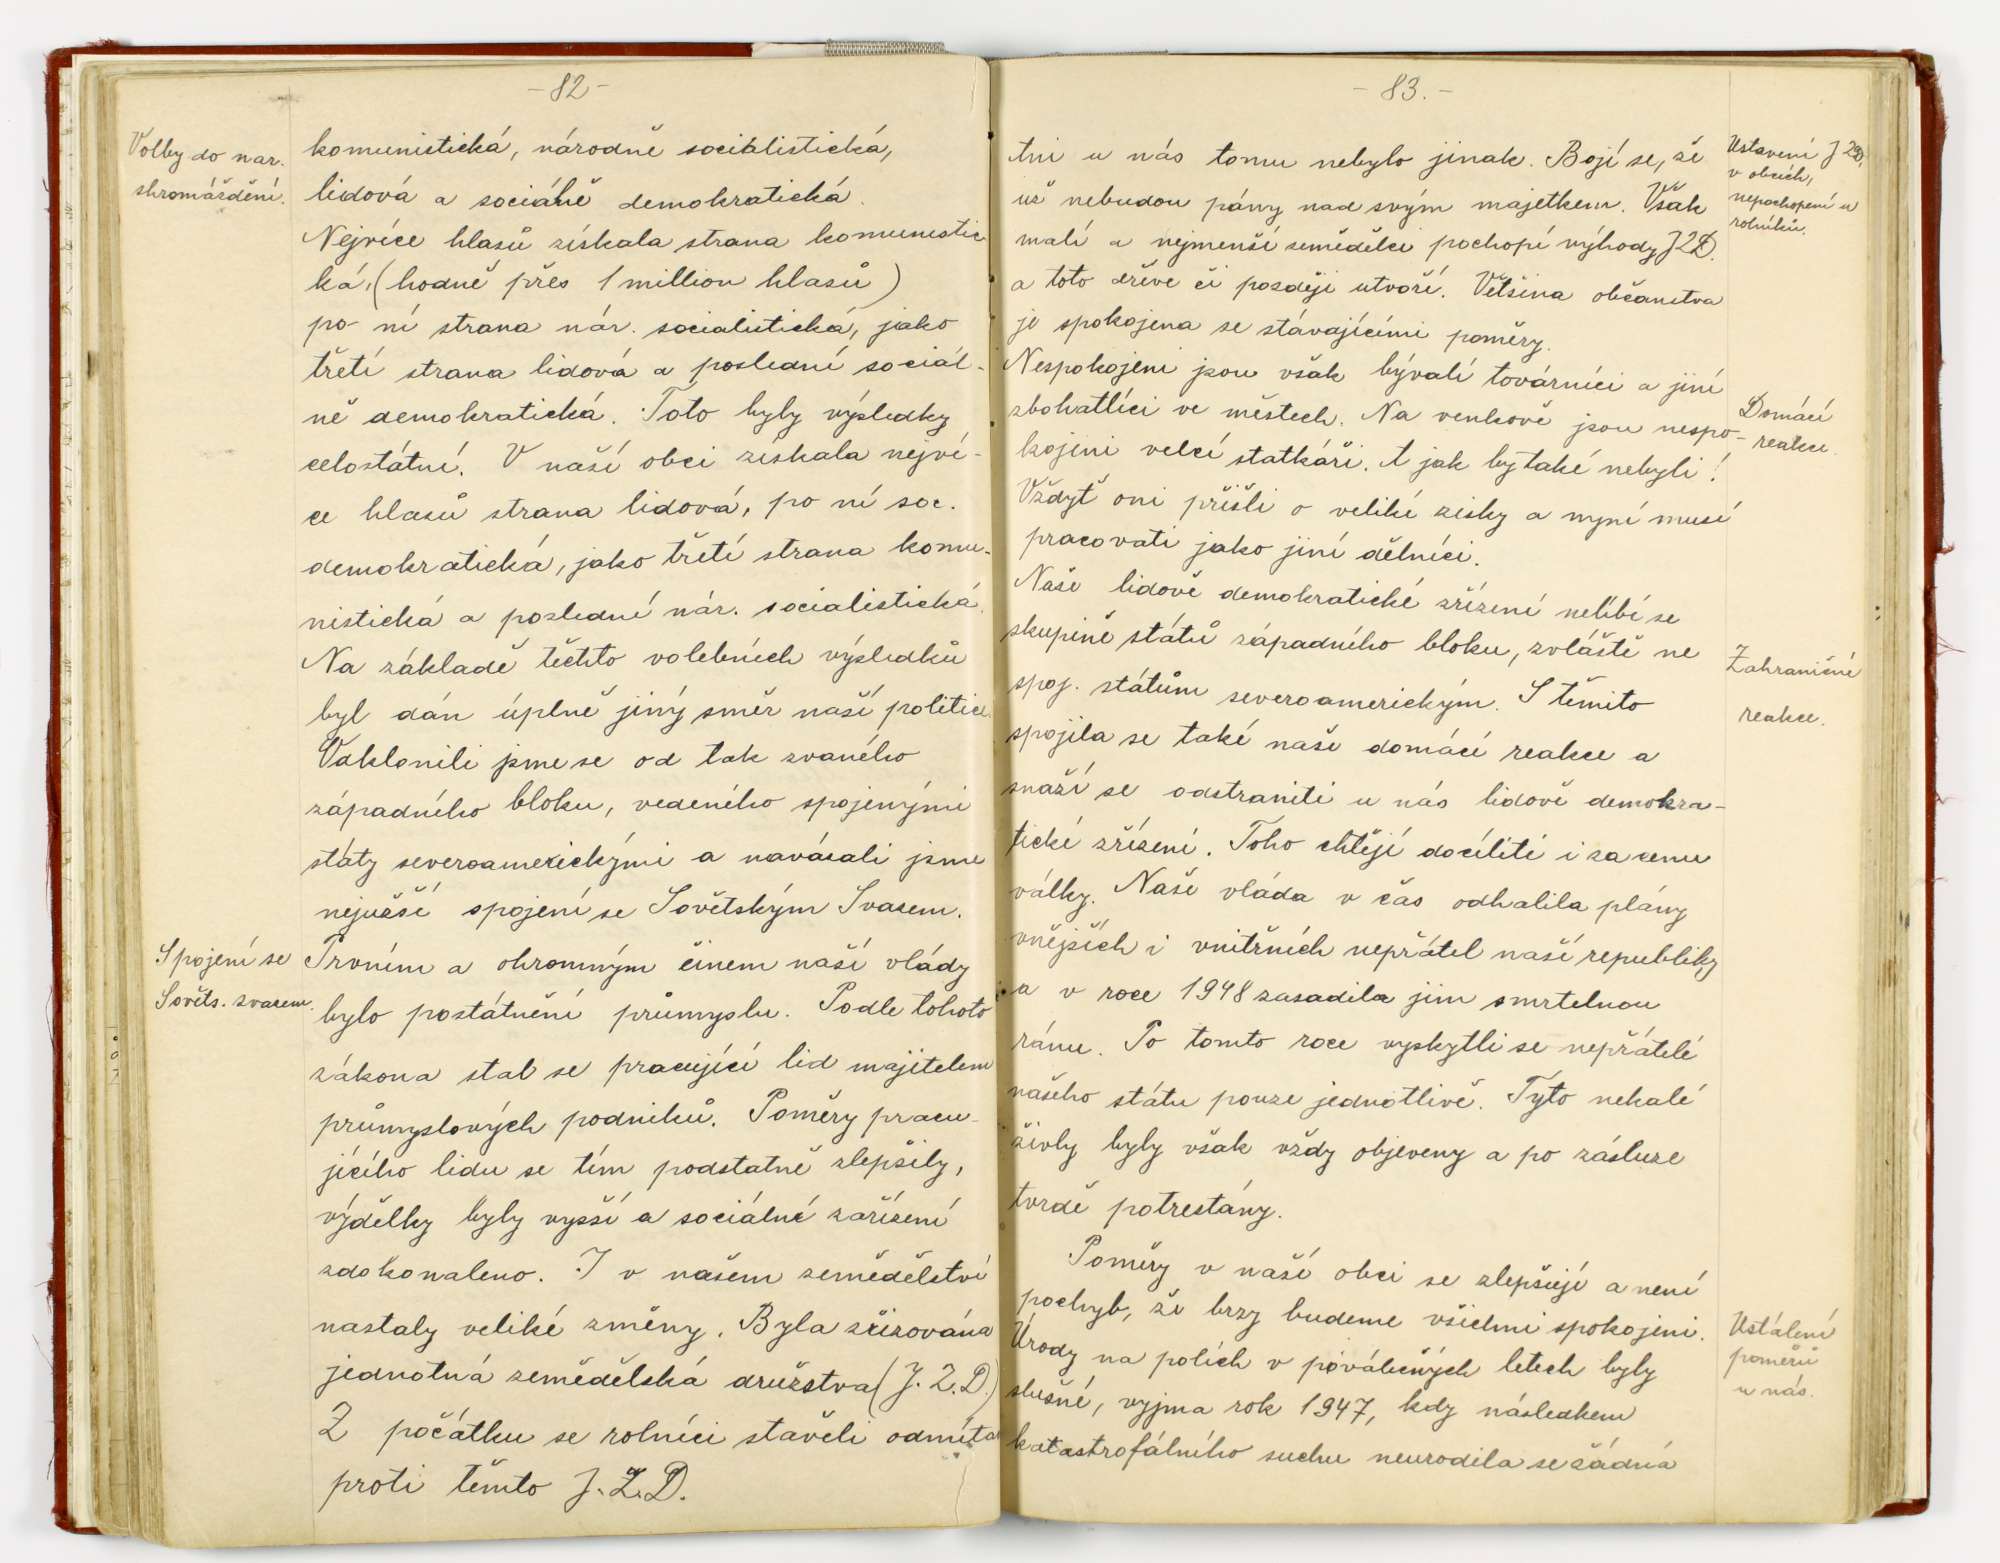 - 82 -
Volby do nar.
shromáždění.
komunistická, národně socialistická,
lidová a sociálně demokratická.
Nejvíce hlasů získala strana komunistic
ká, (hodně přes 1 million hlasů)
po ní strana nár. socialistická, jako
třetí strana lidová a poslední sociál-
ně demokratická. Toto byly výsledky
celostátní. V naší obci získala nejví-
ce hlasů strana lidová, po ní soc.
demokratická, jako třetí strana komu-
nistická a poslední nár. socialistická.
Na základě těchto volebních výsledků
byl dán úplně jiný směr naší politice.
Odklonili jsme se od tak zvaného
západního bloku, vedeného spojenými
státy severoamerickými a navázali jsme
nejužší spojení se Sovětským Svazem.
Spojení se
Sověts. svazem.
Prvním a ohromným činem naší vlády
bylo postátnění průmyslu. Podle tohoto
zákona stal se pracující lid majitelem
průmyslových podniků. Poměry pracu-
jícího lidu se tím podstatně zlepšily,
výdělky byly vyšší a sociální zařízení
zdokonaleno. I v našem zemědělství
nastaly veliké změny. Byla zřizována
jednotná zemědělská družstva (J.Z.D.)
Z počátku se rolníci stavěli odmíta
proti těmto J.Z.D.
- 83. -
tni u nás tomu nebylo jinak. Bojí se, že
už nebudou pány nad svým majetkem. Však
malí a nejmenší zemědělci pochopí výhody JZD.
a toto dříve či později utvoří. Většina občanstva
je spokojena se stávajícími poměry.
Ustavení JZD.
v obcích,
nepochopení u
rolníků.
Nespokojeni jsou však bývalí továrníci a jiní
zbohatlíci ve městech. Na venkově jsou nespo-
kojeni velcí statkáři. A jak by také nebyli!
Vždyť oni přišli o veliké zisky a nyní musí
pracovati jako jiní dělníci.
Domácí
reakce.
Naše lidově demokratické zřízení nelíbí se
skupině států západního bloku, zvláště ne
spoj. státům severoamerickým. S těmito
spojila se také naše domácí reakce a
snaží se odstraniti u nás lidově demokra-
tické zřízení. Toho chtějí docíliti i za cenu
války. Naše vláda v čas odhalila plány
vnějších i vnitřních nepřátel naší republiky
a v roce 1948 zasadila jim smrtelnou
ránu. Po tomto roce vyskytli se nepřátelé
našeho státu pouze jednotlivě. Tyto nekalé
živly byly však vždy objeveny a po zásluze
tvrdě potrestány.
Zahraniční
reakce.
Poměry v naší obci se zlepšují a není
pochyb, že brzy budeme všichni spokojeni.
Úrody na polích v poválečných letech byly
slušné, vyjma rok 1947, kdy následkem
katastrofálního sucha neurodila se žádná
Ustálení
poměrů
u nás.